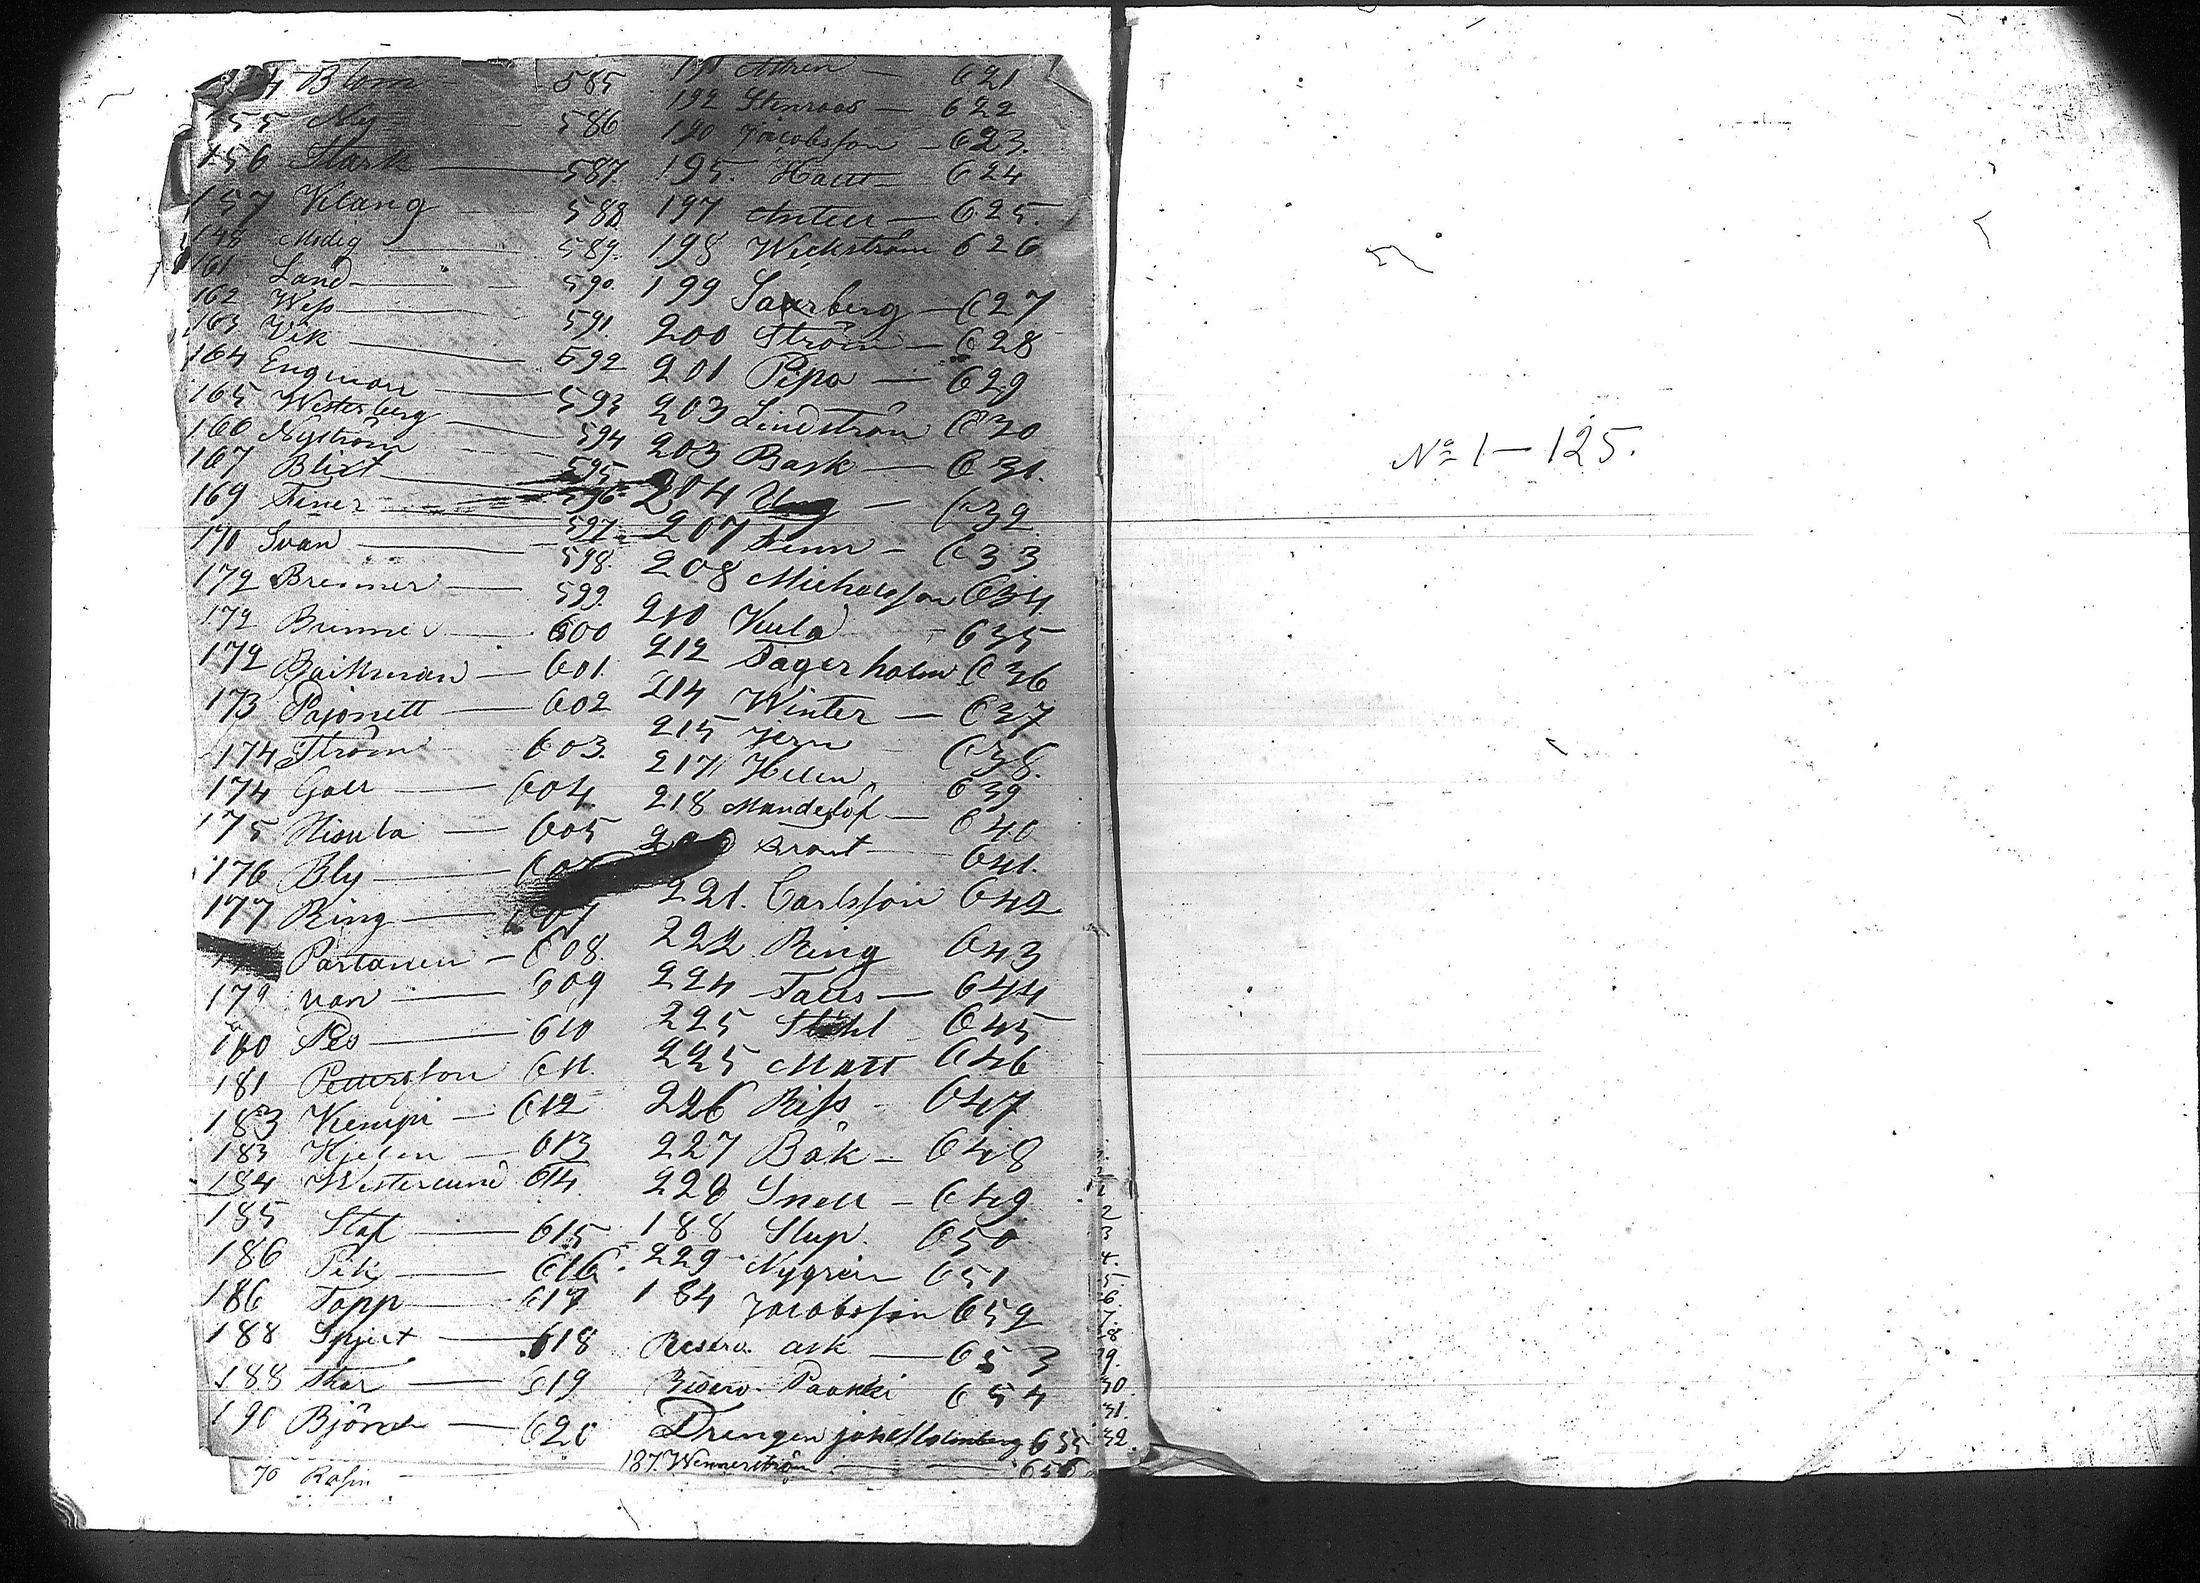 Blom 585
55 Ny 586
156 Stark 587
157 Klang 588
Modig 589
161 Land 590
162 Wess 591
163 Vik 592
164 Engman 593
165 Westerberg 594
166 Nyström 595
167 Blixt 596
169 Finer 597
170 Svan 598
172 Brenner 599
172 600
172 601
173 Pajonett 602
174 Ström 603
174 Gall 604
175 605
176 Bly
177 Ring
Partanen 608
179 van 609
180 610
181 Pettersson 611
183 Kempi 612
183 Hjelm 613
184 Westerlund 614
185 615
186 Pik 616
186 Tapp 617
188 Spjut 618
188 619
190 Björn 620
70 Rosin
621
192 Stenroos 622
190 Jacobsson 623
195 624
197 625
198 Weckström 626
199 627
200 Ström 628
201 Pipa 629
203 Lindström 630
203 Bask 631
204 Ung 632
207 Finn 633
208 Michelsson 634
210 Kula 635
212 Fagerholm 636
214 Winter 637
215 Jern 638
217 Helen 639
218 Mandelöf 640
641
221 Carlsson 642
222 Ring 643
224 644
225 Ståhl 645
225 Matt 646
226 Riss 647
227 Bäk 648
228 Snell 649
188 Slup 650
229 Nygren 651
184 Jacobsson 652
Reserv. ask 653
Reserv. Paakki 654
Drengen Malmberg 655
187 Wennerström 656
2
3
4.
5.
6.
7.
28
29.
30.
31.
32.
No 1 — 125.